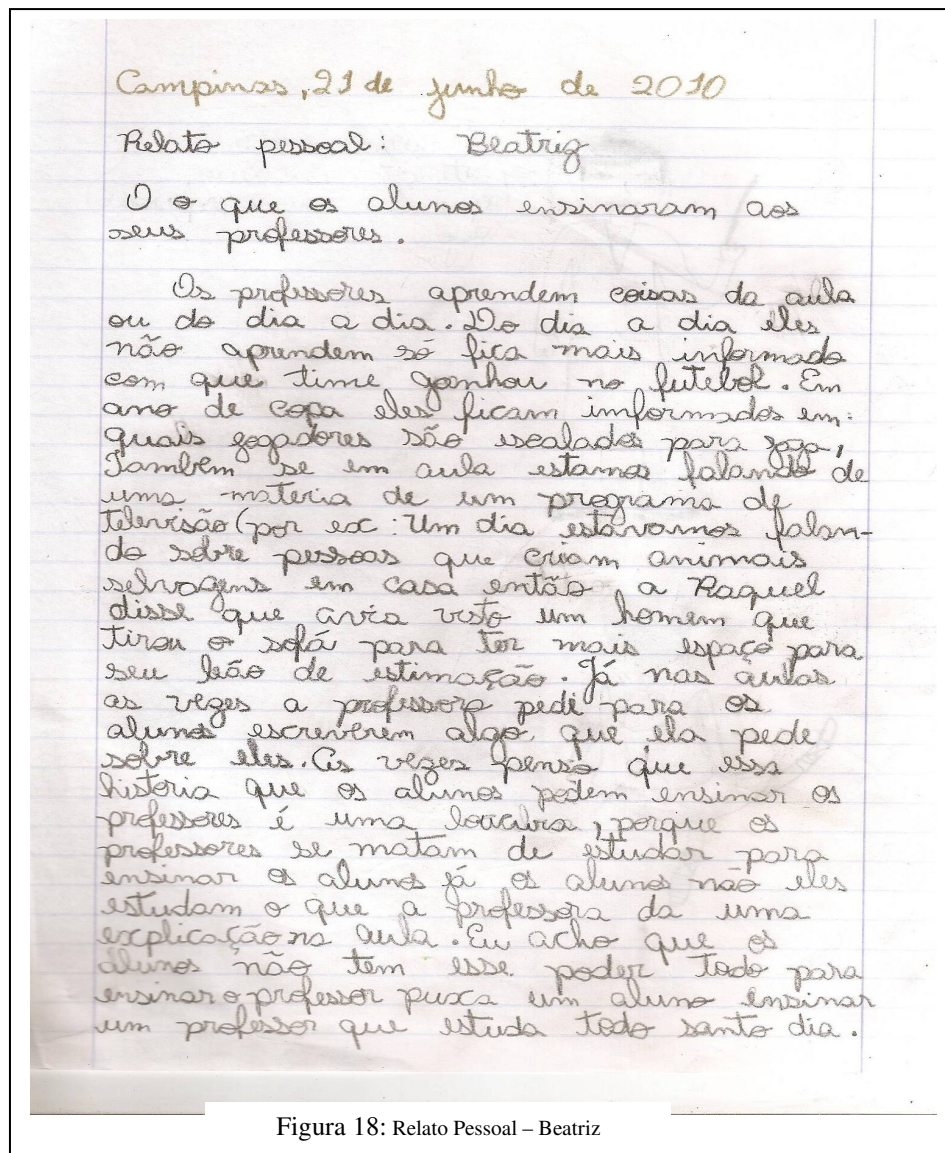 Campinas, 21 de junho de 2010
Relato pessoal: Beatriz
O o que os alunos ensinaram aos
seus professores.
Os professores aprendem coisas da aula
ou do dia a dia. Do dia a dia eles
não aprendem só fica mais informado
com que time ganhou no futebol. Em
ano de copa eles ficam imformados em:
quais gogadores são escalados para joga,
Também se em aula estamos falando de
uma materia de um programa de
televisão (por ex: Um dia estavamos falan-
do sobre pessoas que criam animais
selvagens em casa então a Raquel
disse que avia visto um homem que
tirou o sofá para ter mais espaço para
seu leão de estimação. Já nas aulas
as vezes a professora pede para os
alunos escreverem algo que ela pede
sobre eles. As vezes penso que essa
historia que os alunos podem ensinar os
professores é uma loucura, porque os
professores se matam de estudar para
ensinar os alunos já os alunos não eles
estudam o que a professora da uma
explicação na aula. Eu acho que os
alunos não tem esse poder todo para
ensinar o professor puxa um aluno ensinar
um professor que estuda todo santo dia.
Figura 18: Relato Pessoal – Beatriz